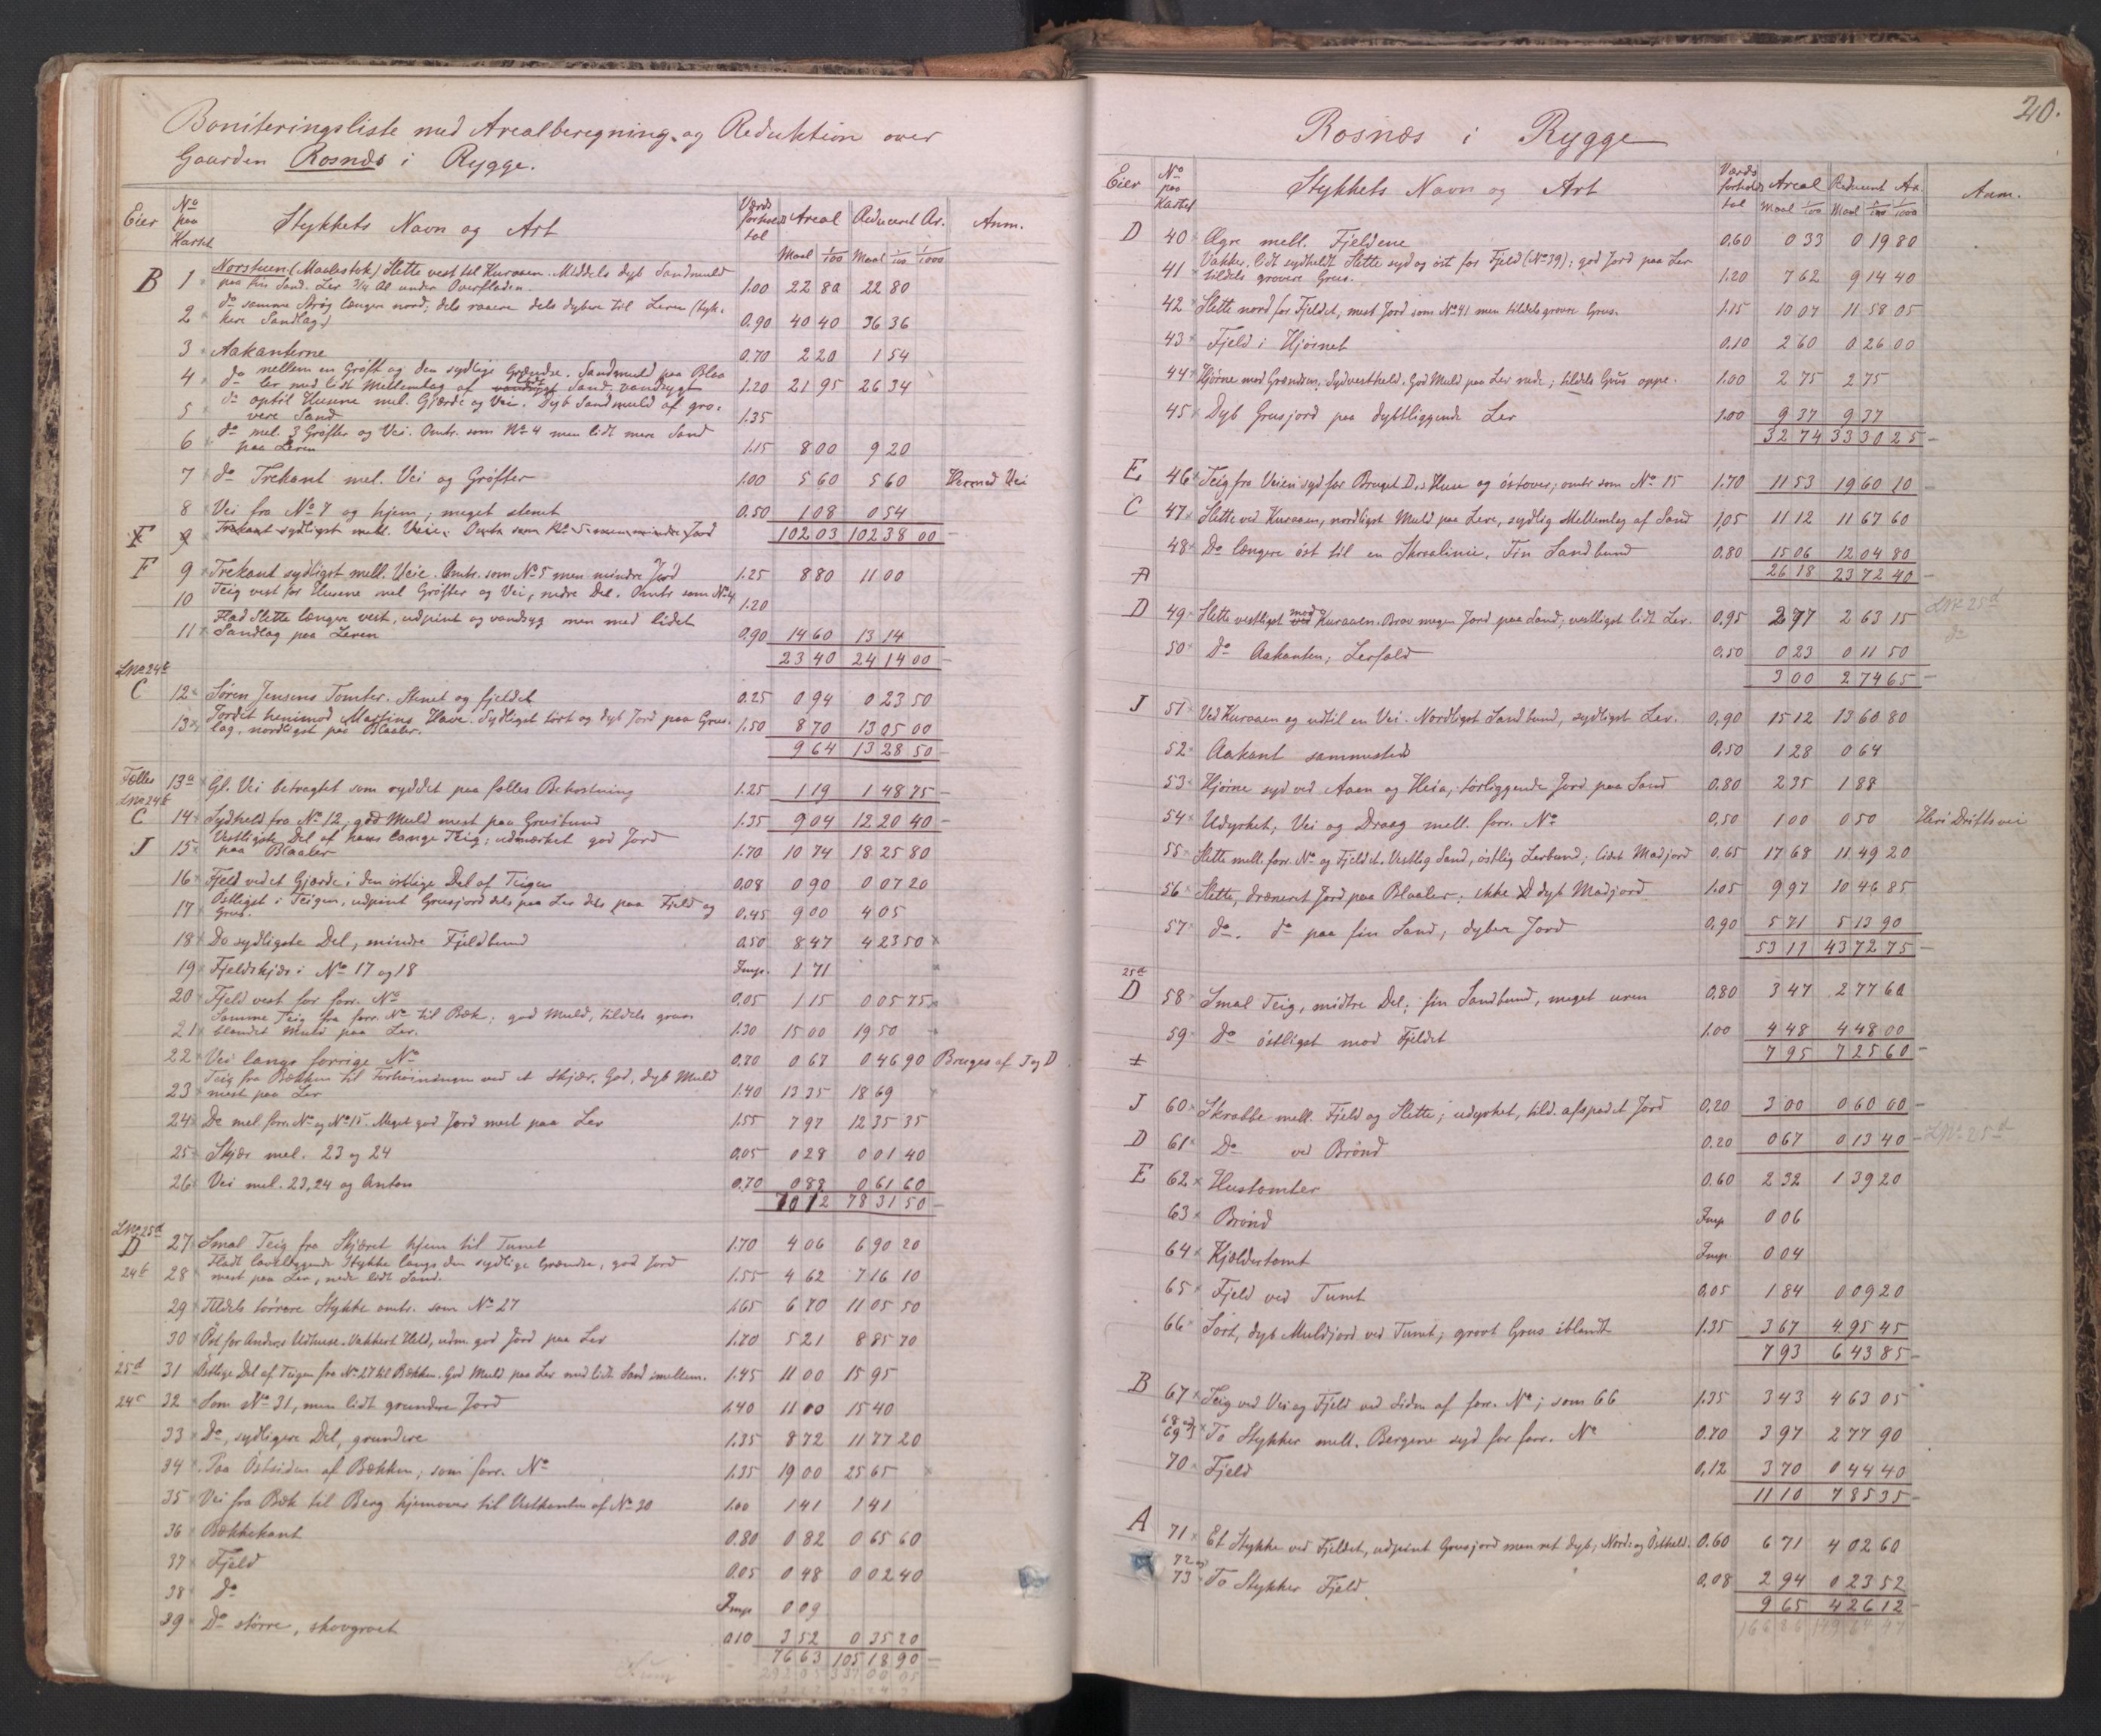 Boniteringsliste med Arealberegning og Reduktion over
Gaarden Rosnæs i Rygge.
Eier No paa Kartet Stykkets Navn og Art Værdiforholdstal Areal Reduceret Ar. Anm.
Maal 1/100 Maal 1/100 1/1000
B 1 Norsteen (Maalestok) Slette vest til Kuraaen. Middels dyb Sandmuld
paa fin Sand. Ler 3/4 Al under Overfladen. 1.00 22 80 22 80
2 do samme Strøg længer nord; dels raaere dels dybere til Leren (tyk-
kere Sandlag) 0.90 40 40 36 36
3 Aakanterne 0.70 2 20 1 54
4 do mellem en Grøft og den sydlige Grændse. Sandmuld paa Blaa
ler med lidt Mellemlag af Sand, vandsygt 1.20 21 95 26 34
5 do optil Husene mel. Gjærde og Vei. Dyb Sandmuld af gro-
vere Sand 1.35
6 do mel. 3 Grøfter og Vei. Omtr. som No 4 men lidt mere Sand
paa Leren 1.15 8 00 9 20
7 do Trekant mel. Vei og Grøfter 1.00 5 60 5 60 Hermed Vei
8 Vei fra No 7 og hjem; meget stenet 0.50 1 08 0 54
F 9 Trekant sydligst mell. Veie. Omtr. som No 5 men mindre Jord 102 03 102 38 00
F 9 Trekant sydligst mell. Veie. Omtr. som No 5 men mindre Jord 1.25 8 80 11 00
10 Teig vest for Husene mel Grøfter og Vei, nedre Del. Omtr som No 4 1.20
11 Flad Slette længer vest, udpint og vandsyg men med lidet
Sandlag paa Leren 0.90 14 60 13 14
23 40 24 14 00
LNo 24c
C 12 Søren Jensens Tomter. Stenet og fjeldet 0.25 0 94 0 23 50
13 Jordet henimod Martins Have. Sydligst tørt og dyb Jord paa Grus-
lag, nordligst paa Blaaler. 1.50 8 70 13 05 00
9 64 13 28 50
Fælles 13a Gl. Vei betragtet som ryddet paa fælles Bekostning 1.25 1 19 1 48 75
LNo 24c
C 14 Sydheld fra No 12, god Muld mest paa Grusbund 1.35 9 04 12 20 40
J 15 Vestligste Del af hans lange Teig; udmærket god Jord
paa Blaaler 1.70 10 74 18 25 80
16 Fjeld vedet Gjærde i den østlige Del af Teigen 0.08 0 90 0 07 20
17 Østligst i Teigen, udpint Grusjord dels paa Ler dels paa Fjeld og
Grus. 0.45 9 00 4 05
18 Do sydligste Del, mindre Fjeldbund 0.50 8 47 4 23 50
19 Fjeldskjær i No 17 og 18 Imp. 1 71
20 Fjeld vest for forr. No 0.05 1 15 0 05 75
21 Samme Teig fra forr. No til Bæk; god Muld, tildels grus
blandet Muld paa Ler. 1.30 15 00 19 50
22 Vei langs forrige No 0.70 0 67 0 46 90 Bruges af J og D
23 Teig fra Bækken til Forhøiningen ved et Skjær. God, dyb Muld
mest paa Ler 1.40 13 35 18 69
24 Do mel forr. No og No 15. Meget god Jord mest paa Ler 1.55 7 97 12 35 35
25 Skjær mel. 23 og 24 0.05 0 28 0 01 40
26 Vei mel. 23, 24 og Anton 0.70 0 88 0 61 60
70 12 78 31 50
LNo 25d
D 27 Smal Teig fra Skjæret hjem til Tunet 1.70 4 06 6 90 20
24c 28 Fladt lavtliggende Stykke langs den sydlige Grændse, god Jord
mest paa Ler, nede lidt Sand. 1.55 4 62 7 16 10
29 Tildels tørrere Stykke omtr. som No 27 1.65 6 70 11 05 50
30 Øst for Anders Udhuse. Vakkert Held, udm. god Jord paa Ler 1.70 5 21 8 85 70
25d 31 Østlige Del af Teigen fra No 27 til Bækken. God Muld paa Ler med lidt Sand imellem. 1.45 11 00 15 95
24c 32 Som No 31, men lidt grundere Jord 1.40 11 00 15 40
33 Do, sydligere Del, grundere 1.35 8 72 11 77 20
34 Paa Østsiden af Bækken; som forr. No 1.35 19 00 25 65
35 Vei fra Bæk til Berg hjemover til Vestkanten af No 30 1.00 1 41 1 41
36 Bækkekant 0.80 0 82 0 65 60
37 Fjeld 0.05 0 48 0 02 40
38 do Imp 0 09
39 Do større, skovgroet 0.10 3 52 0 35 20
76 63 105 18 90
Sum 292 05 337 00 05
20.
Rosnæs i Rygge
Eier No paa Kartet Stykkets Navn og Art Værdiforholdstal Areal Reduceret Ar. Anm.
Maal 1/100 Maal 1/100 1/1000
D 40 Agre mell. Fjeldene 0.60 0 33 0 19 80
41 Vakker, lidt sydheldt Slette syd og øst for Fjeld (No 39); god Jord paa Ler
tildels grovere Grus. 1.20 7 62 9 14 40
42 Slette nord for Fjeldet; mest Jord som No 41 men tildels grovere Grus. 1.15 10 07 11 58 05
43 Fjeld i Hjørnet 0.10 2 60 0 26 00
44 Hjørne mod Grændsen. Sydvestheld. God Muld paa Ler nede; tildels Grus oppe. 1.00 2 75 2 75
45 Dyb Grusjord paa dybtliggende Ler 1.00 9 37 9 37
32 74 33 30 25
E 46 Teig fra Veien syd for Bruget D.s Huse og østover; omtr som No 15 1.70 11 53 19 60 10
C 47 Slette ved Kuraaen, nordligst Muld paa Lere, sydlig Mellemlag af Sand 1,05 11 12 11 67 60
48 Do længere øst til en Skraalinie. Fin Sandbund 0.80 15 06 12 04 80
A 26 18 23 72 40
D 49 Slette vestligst mod Kuraaen. Brav megen Jord paa Sand; vestligst lidt Ler. 0,95 2 77 2 63 15 LNo 25d
50 Do Aakanten; Lerfald 0.50 0 23 0 11 50 do
3 00 2 74 65
J 51 Ved Kuraaen og udtil en Vei. Nordligst Sandbund, sydligst Ler. 0,90 15 12 13 60 80
52 Aakant sammesteds 0.50 1 28 0 64
53 Hjørne syd ved Aaen og Heia; tørliggende Jord paa Sand 0.80 2 35 1 88
54 Udyrket, Vei og Draag mell. forr. No 0.50 1 00 0 50 Heri Driftsvei
55 Slette mell. forr. No og Fjeldet. Vestlig Sand, østlig Lerbund; lidet Madjord 0.65 17 68 11 49 20
56 Slette, dræneret Jord paa Blaaler; ikke dyb Madjord 1.05 9 97 10 46 85
57 do. do paa fin Sand; dybere Jord 0.90 5 71 5 13 90
53 11 43 72 75
25d
D 58 Smal Teig, midtre Del; fin Sandbund, meget uren 0,80 3 47 2 77 60
59 do østligst mod Fjeldet 1.00 4 48 4 48 00
7 95 7 25 60
J 60 Skrabbe mell. Fjeld og Slette; udyrket, tild. afspadet Jord 0,20 3 00 0 60 00
D 61 Do ved Brønd 0.20 0 67 0 13 40 LNo 25d
E 62 Hustomter 0.60 2 32 1 39 20
63 Brønd Imp 0 06
64 Kjeldertomt Imp. 0 04
65 Fjeld ved Tunet 0.05 1 84 0 09 20
66 Sort, dyb Muldjord ved Tunet; grovt Grus iblandt 1.35 3 67 4 95 45
7 93 6 43 85
B 67 Teig ved Vei og Fjeld ved Siden af forr. No; som 66 1.35 3 43 4 63 05
68 og 69 To Stykker mell. Bergene syd for forr. No 0.70 3 97 2 77 90
70 Fjeld 0,12 3 70 0 44 40
11 10 7 85 35
A 71 Et Stykke ved Fjeldet, udpint Grusjord men ret dyb; Nord- og Østheld. 0.60 6 71 4 02 60
72 og 73 To Stykker Fjeld 0,08 2 94 0 23 52
9 65 4 26 12
166 86 149 64 47